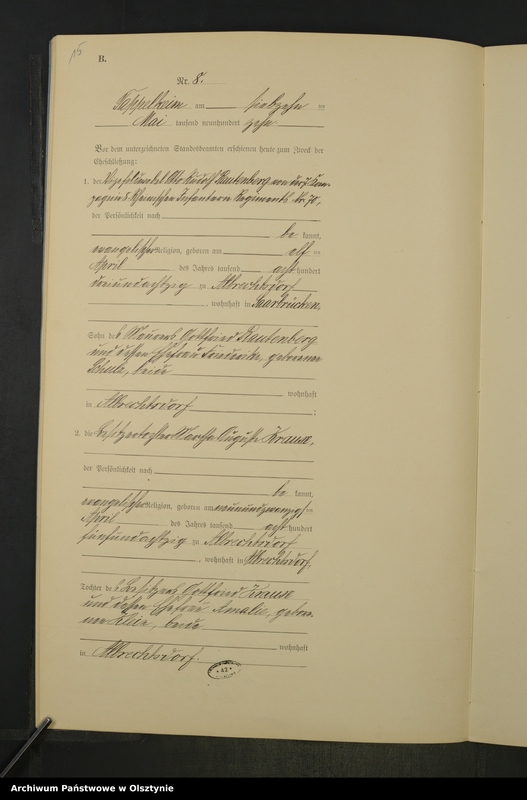 B.
Nr. 8.
Tappelkeim am siebzehn ten
Mai tausend neunhundert zehn
Vor dem unterzeichneten Standesbeamten erschienen heute zum Zweck der
Eheschließung:
1. der Vizefeldwebel Otto Rudolf Rautenberg von der 7. Kom-
pagnie 8. Rheinischen Infanterie Regiments Nr. 70,
der Persönlichkeit nach
be kannt,
evangelischer Religion, geboren am elf ten
April des Jahres tausend acht hundert
zu Albrechtsdorf
, wohnhaft in Saarbrücken,
Sohn des Maurers Gottfried Rautenberg
und dessen Ehefrau Friederike, geborenen
Schulz, beide
wohnhaft
in Albrechtsdorf ;
2. die Besitzertochter Martha Auguste Krause,
der Persönlichkeit nach
be kannt,
evangelischer Religion, geboren am neunundzwanzig ten
April des Jahres tausend acht hundert
fünfundachtzig zu Albrechtsdorf
, wohnhaft in Albrechtsdorf,
Tochter des Besitzers Gottfried Krause
und dessen Ehefrau Amalie, gebore-
nen beide
wohnhaft
in Albrechtsdorf.
* 42 *
Archiwum Państwowe w Olsztynie